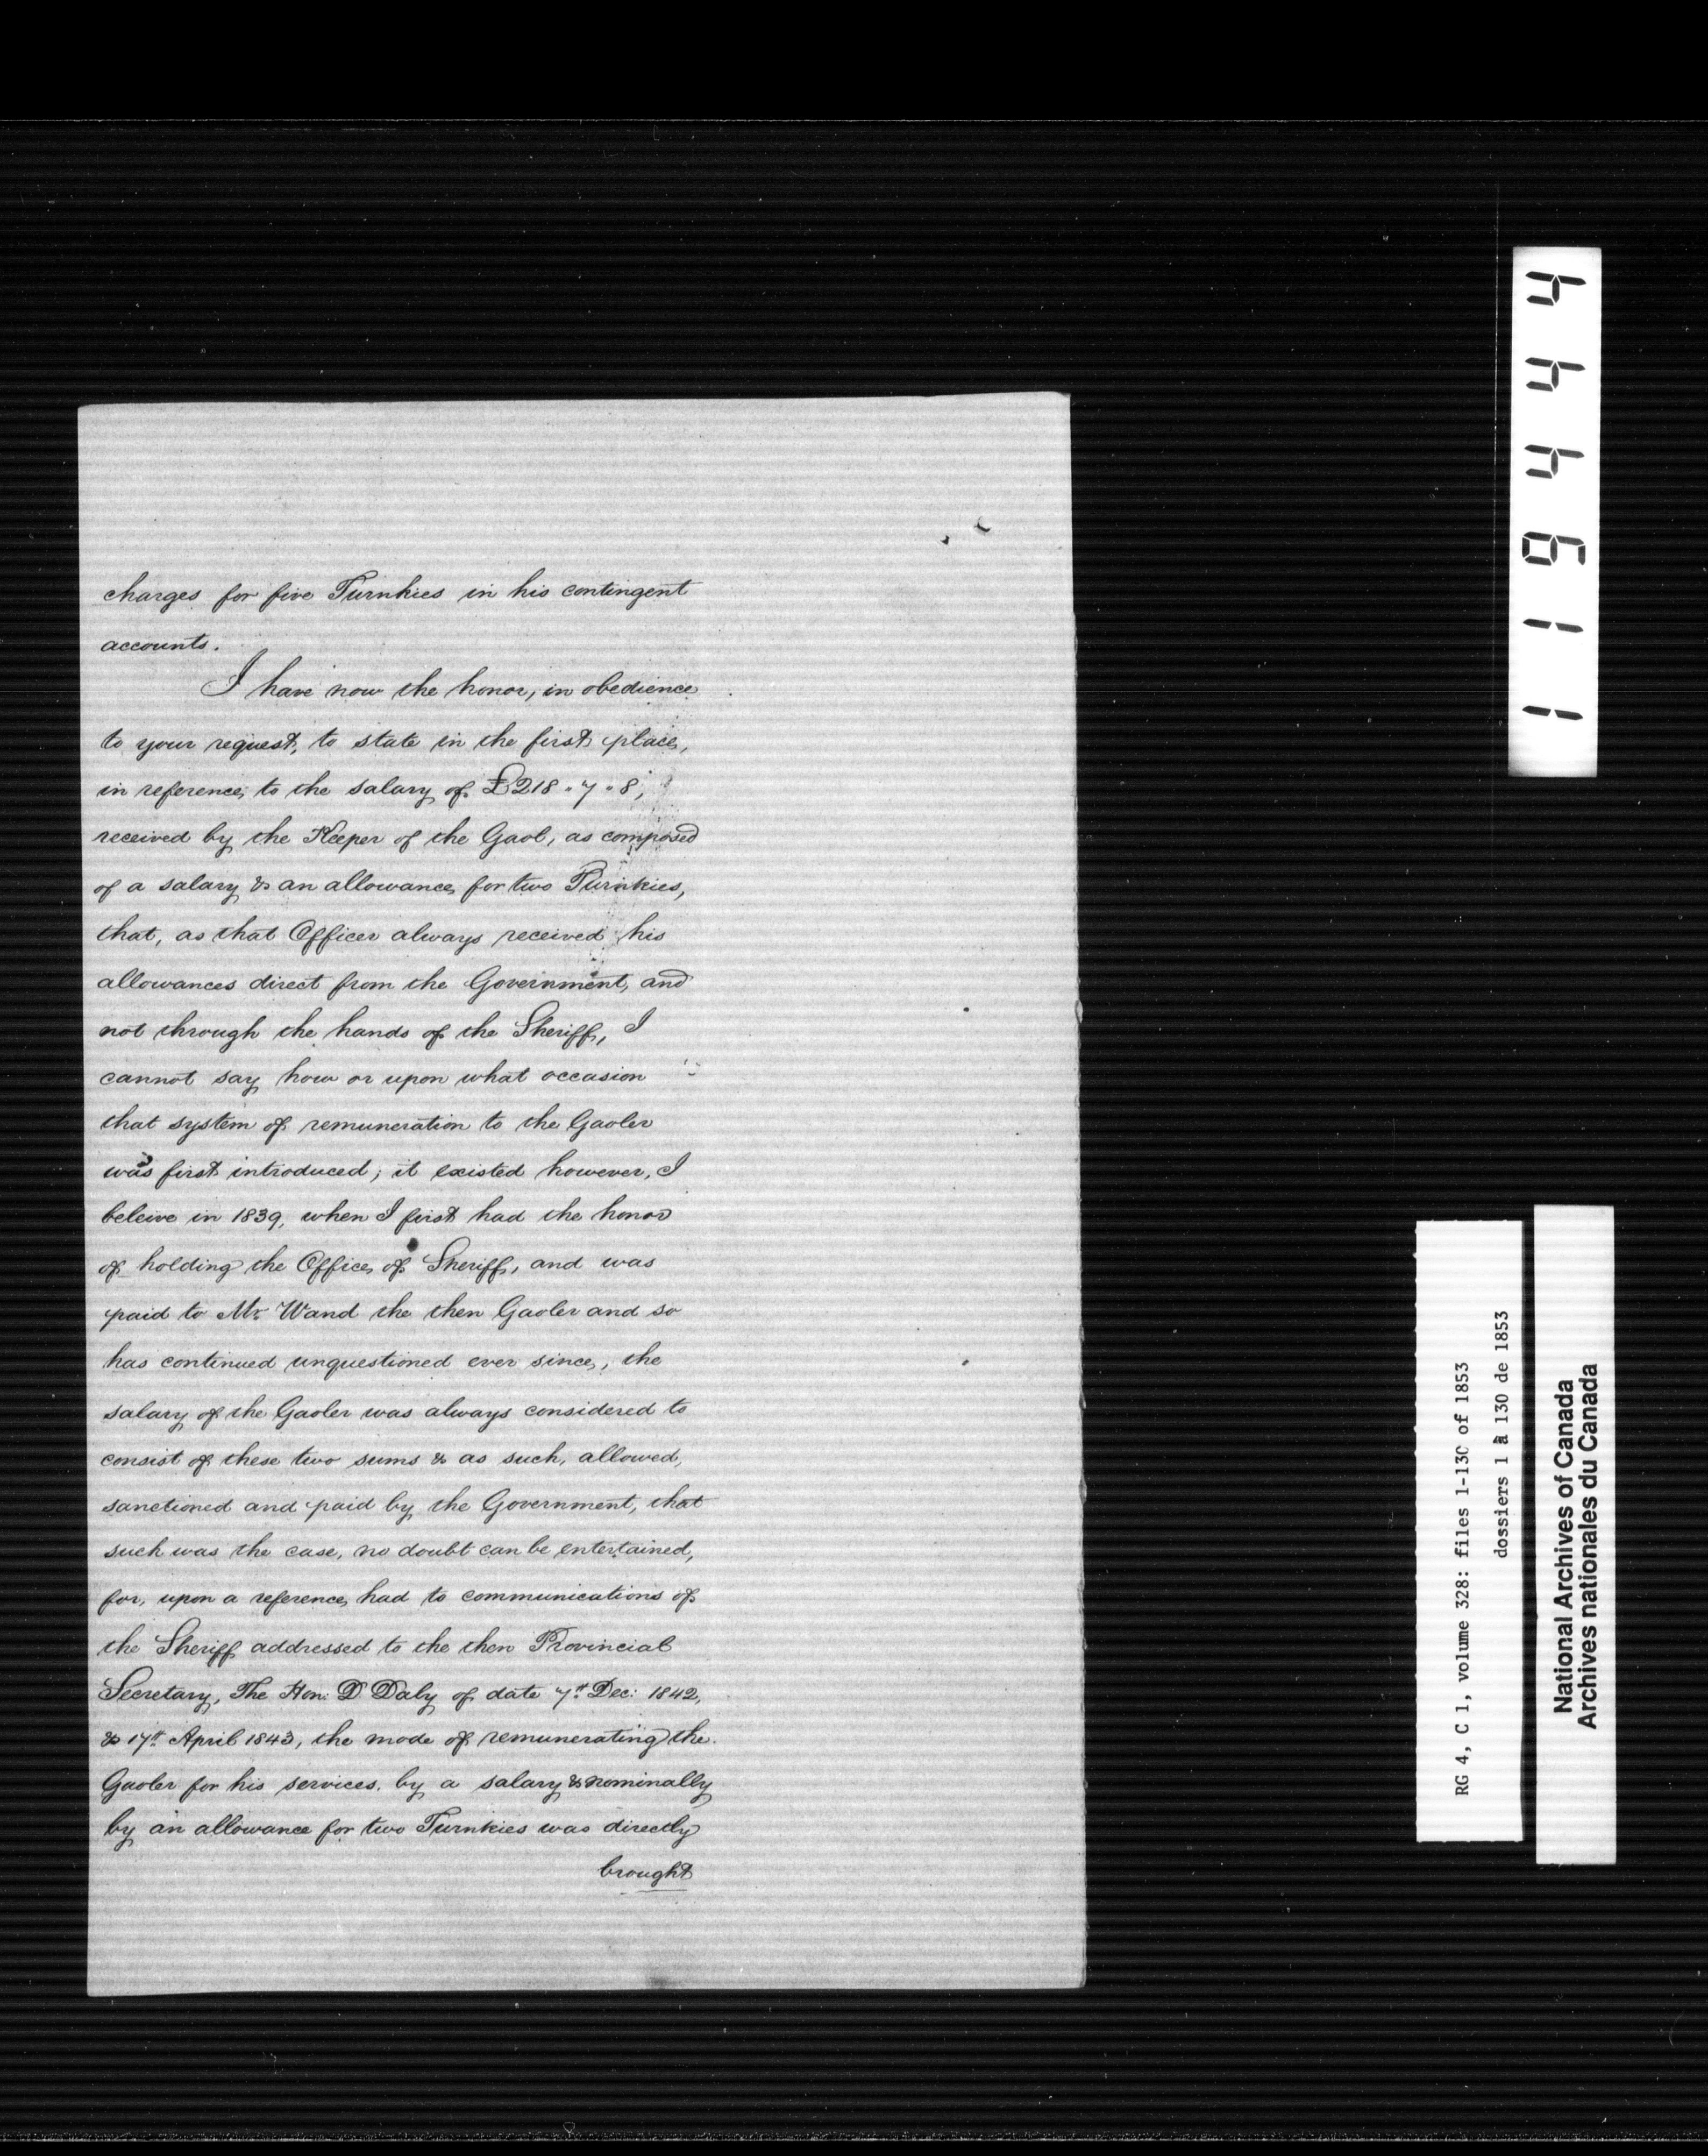 charges for five Turnkies in his contingent
accounts.
I have now the honor, in obedience
to your request, to state in the first place,
in reference to the salary of £218 " 7 " 8,
received by the Keeper of the Gaol, as composed
of a salary & an allowance for two Turnkies,
that, as that Officer always received his
allowances direct from the Government, and
not through the hands of the Sheriff, I
cannot say how or upon what occasion
that system of remuneration to the Gaoler
was first introduced; it existed however, I
beleive in 1839, when I first had the honor
of holding the Office of Sheriff, and was
paid to Mr. Wand the then Gaoler and so
has continued unquestioned ever since, the
salary of the Gaoler was always considered to
consist of these two sums & as such, allowed,
sanctioned and paid by the Government, that
such was the case, no doubt can be entertained,
for, upon a reference had to communications of
the Sheriff addressed to the then Provincial
Secretary, The Hon: D Daly of date 7th Dec: 1842,
& 17th April 1843, the mode of remunerating the
Gaoler for his services, by a salary & nominally
by an allowance for two Turnkies was directly
brought
119444
RG 4, C 1, volume 328: files 1-130 of 1853
dossiers 1 à 130 de 1853
National Archives of Canada
Archives nationales du Canada